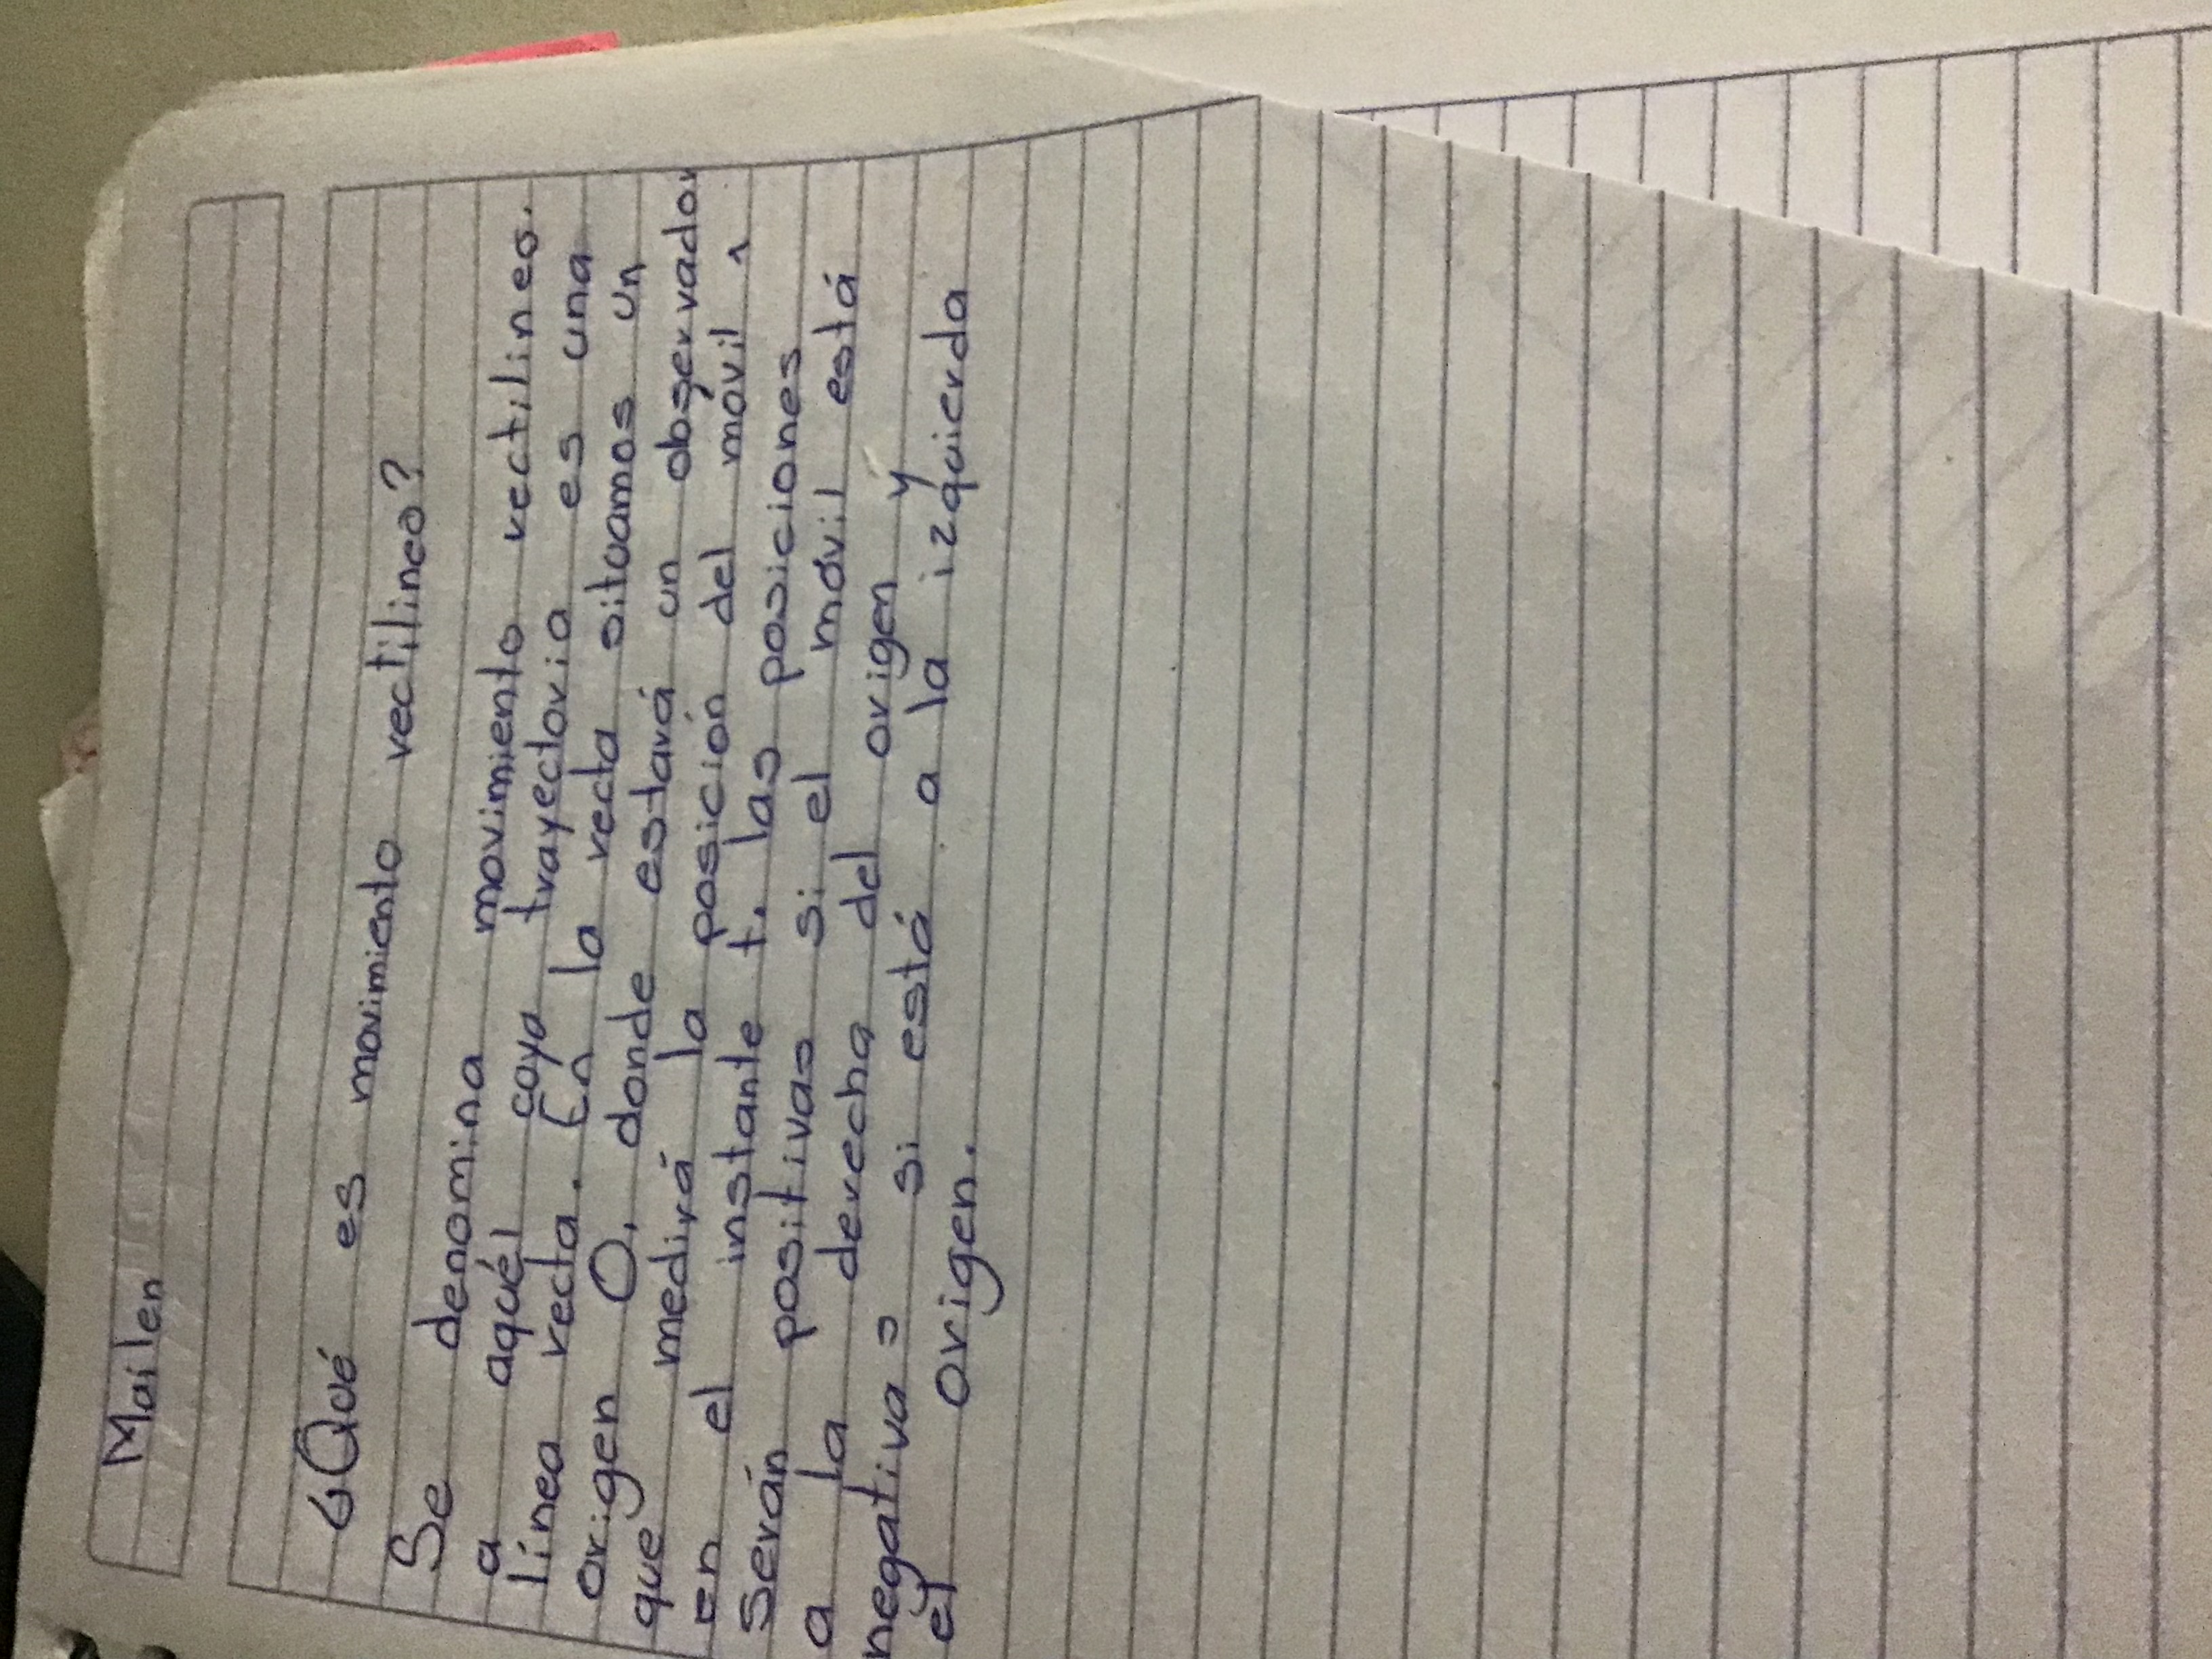 Maílen
¿Qué es movimiento rectilineo?
Se denomina movimiento rectilineo.
a aquél cuya trayectoria es una
línea recta. En la recta situamos un
origen O, donde estará un observador
que medirá la posición del móvil
en el instante t. las posiciones
Serán positivas si el móvil está
a la derecha del origen y
negativas si está a la izquierda
el origen.